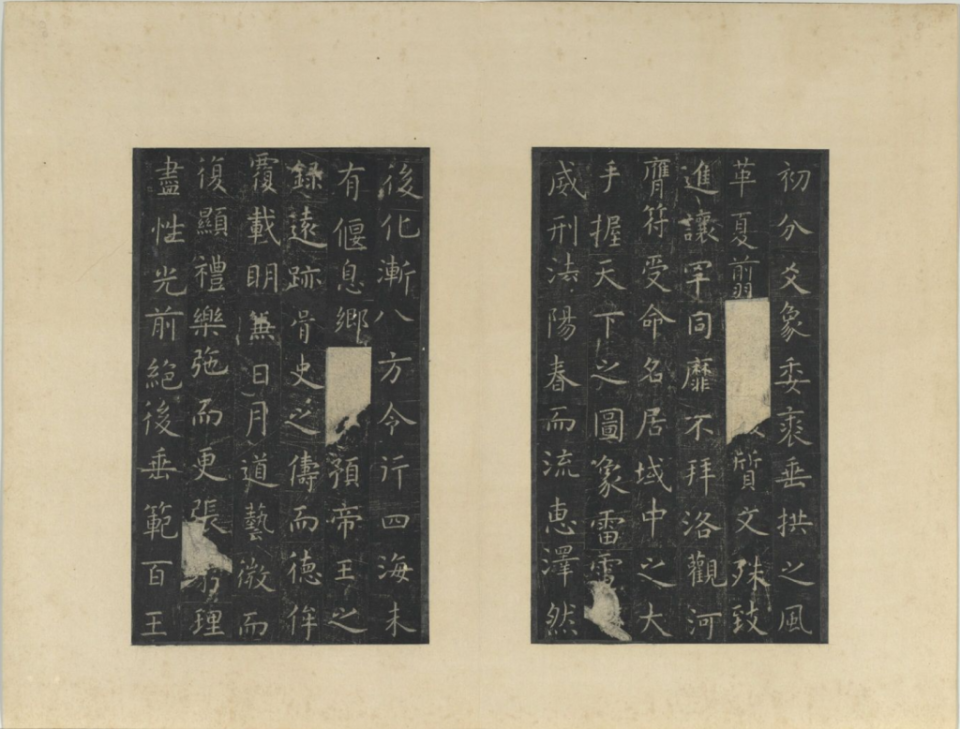 初分爻象委裘垂拱之風
革夏翦質文殊致
進讓罕同靡不拜洛觀河
膺符受命名居域中之大
手握天下之圖象雷電
威刑法陽春而流恵澤然
後化漸八方令行四海未
有偃息鄉預帝王之
録遠跡胥史之儔而德侔
覆載明兼日月道藝微而
復顯禮樂弛而更張窮理
盡性光前絶後垂範百王